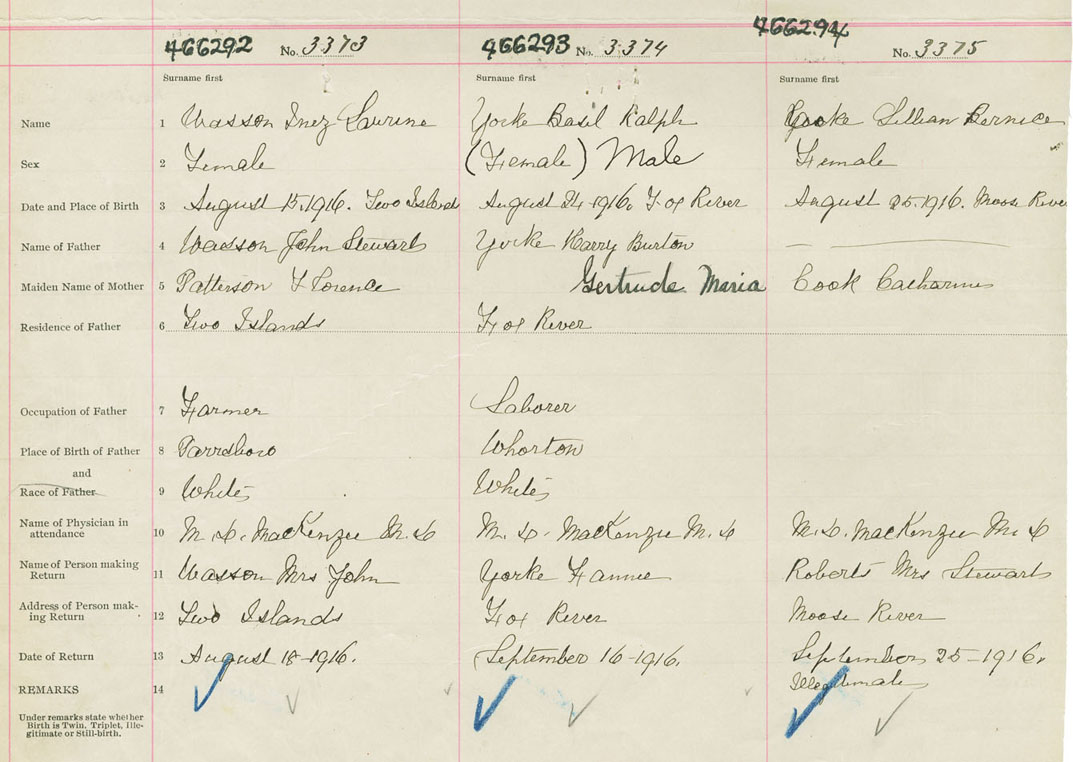 466292 No. 3373 466293 No. 3374 466294 No. 3375
Surname first Surname first Surname first
Name 1 Wasson Inez Laurine Yorke Basil Ralph Cooke Lillian Bernice
Sex 2 Female (Female) Male Female
Date and Place of Birth 3 August 15, 1916. Two Island August 24 1916. Fox River August 25. 1916. Moose River
Name of Father 4 Wasson John Stewart Yorke Harry Burton —
Maiden Name of Mother 5 Patterson Florence Gertrude Maria Cook Catharine
Residence of Father 6 Two Islands Fox River
Occupation of Father 7 Farmer Laborer
Place of Birth of Father 8 Parrsboro Whorton
and
Race of Father 9 White White
Name of Physician in
attendance 10 M. D. MacKenzie M. D M. D. MacKenzie M. D M. D. MacKenzie M. D
Name of Person making
Return 11 Wasson Mrs John Yorke Fannie Roberts Mrs Stewart
Address of Person mak-
ing Return 12 Two Islands Fox River Moose River
Date of Return 13 August 18-1916. September 16-1916. September 25-1916.
REMARKS 14 Illegitimate
Under remarks state whether
Birth is Twin, Triplet, Ille-
gitimate or Still-birth.